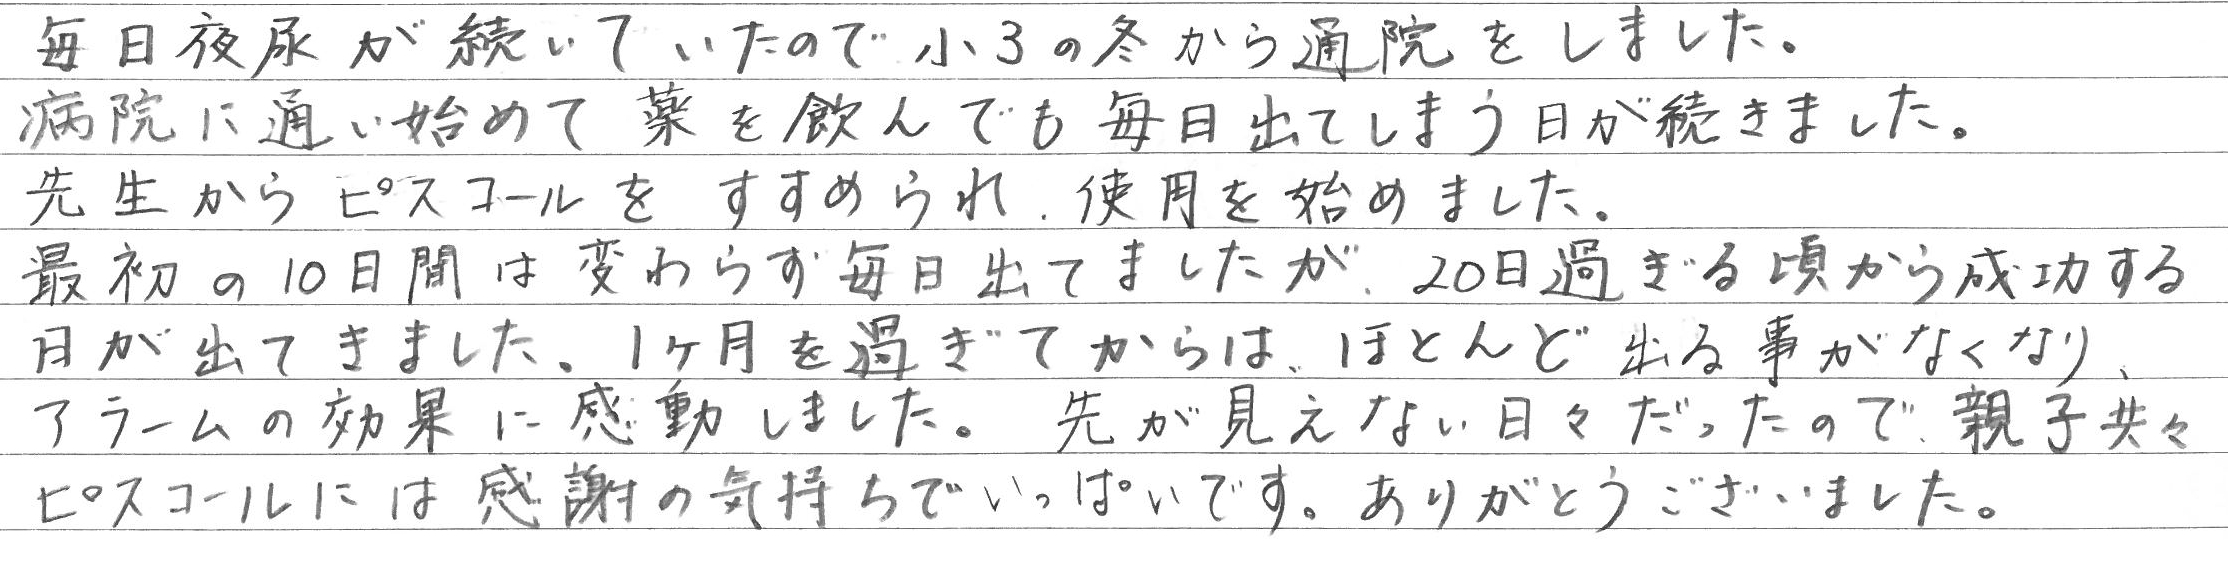 毎日夜尿が続いていたので小3の冬から通院をしました。
病院に通い始めて薬を飲んでも毎日出てしまう日が続きました。
先生からピスコールをすすめられ、使用を始めました。
最初の10日間は変わらず毎日出てましたが、20日過ぎる頃から成功する
日が出てきました。1ヶ月を過ぎてからは、ほとんど出る事がなくなり、
アラームの効果に感動しました。先が見えない日々だったので、親子共々
ピスコールには感謝の気持ちでいっぱいです。ありがとうございました。